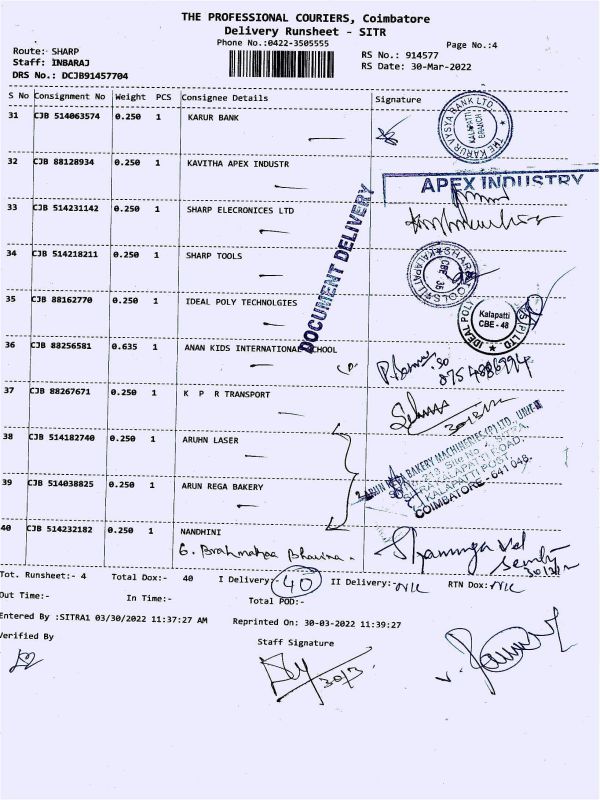 THE PROFESSIONAL COURIERS, Coimbatore
Delivery Runsheet - SITR
Phone No.:0422-3505555
Page No.:4
Route:- SHARP
Staff: INBARAJ
DRS No.: DCJB91457704
RS No.: 914577
RS Date: 30-Mar-2022
S No Consignment No Weight PCS Consignee Details Signature
31 CJB 514063574 0.250 1 KARUR BANK
THE KARUR VYSYA BANK LTD. KALAPATTI BRANCH
32 CJB 88128934 0.250 1 KAVITHA APEX INDUSTR
APEX INDUSTRY
33 CJB 514231142 0.250 1 SHARP ELECRONICES LTD
DOCUMENT DELIVERY
34 CJB 514218211 0.250 1 SHARP TOOLS
SHARP TOOLS KALAPATTI CBE 35
35 CJB 88162770 0.250 1 IDEAL POLY TECHNOLGIES
IDEAL POLY (P) LTD Kalapatti CBE - 48
36 CJB 88256581 0.635 1 ANAN KIDS INTERNATIONAL SCHOOL
8754886994
37 CJB 88267671 0.250 1 K P R TRANSPORT
30/3/22
38 CJB 514182740 0.250 1 ARUHN LASER
ARUN REGA BAKERY MACHINERIES (P) LTD., UNIT-II
KALAPATTI ROAD,
KALAPATTI POST
COIMBATORE - 641 048.
39 CJB 514038825 0.250 1 ARUN REGA BAKERY
40 CJB 514232182 0.250 1 NANDHINI
Shanmuga vel
30/3/22
Tot. Runsheet:- 4 Total Dox:- 40 I Delivery:- 40 II Delivery:- NIL RTN Dox: NIL
Out Time:- In Time:- Total POD:-
Entered By :SITRA1 03/30/2022 11:37:27 AM Reprinted On: 30-03-2022 11:39:27
Verified By
Staff Signature
30/3